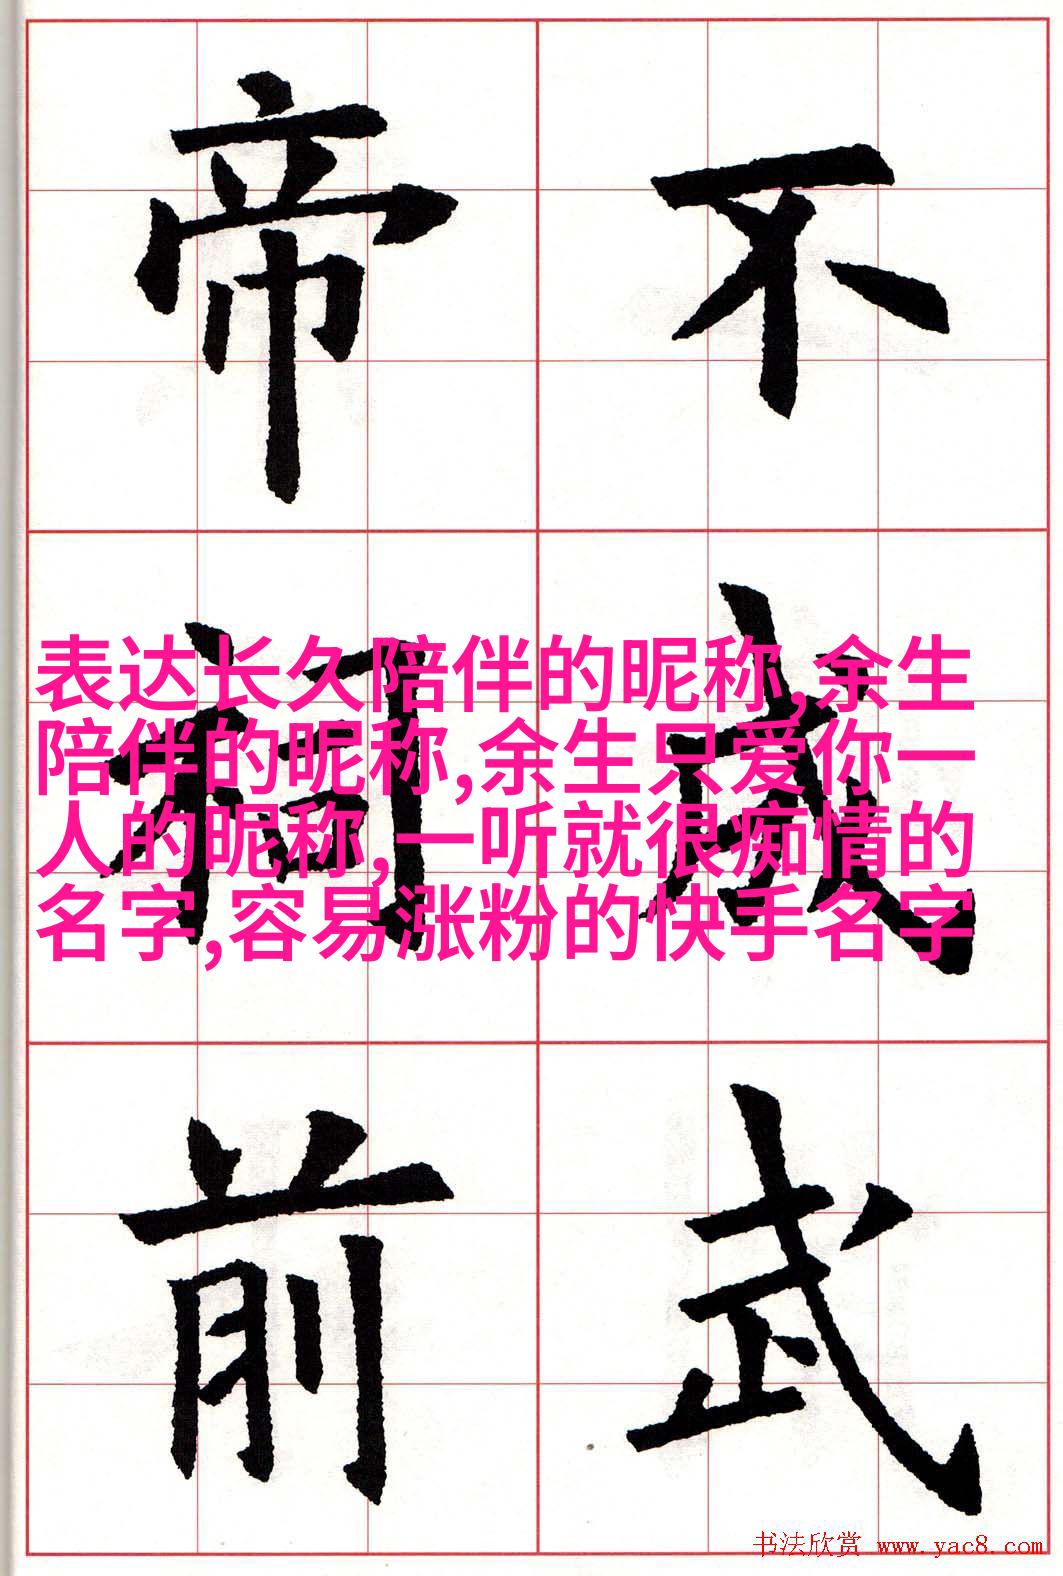 不成武
帝祠前
表达长久陪伴的昵称,余生
陪伴的昵称,余生只爱你一
人的昵称,一听就很痴情的
名字,容易涨粉的快手名字
书法欣赏 www.yac8.com